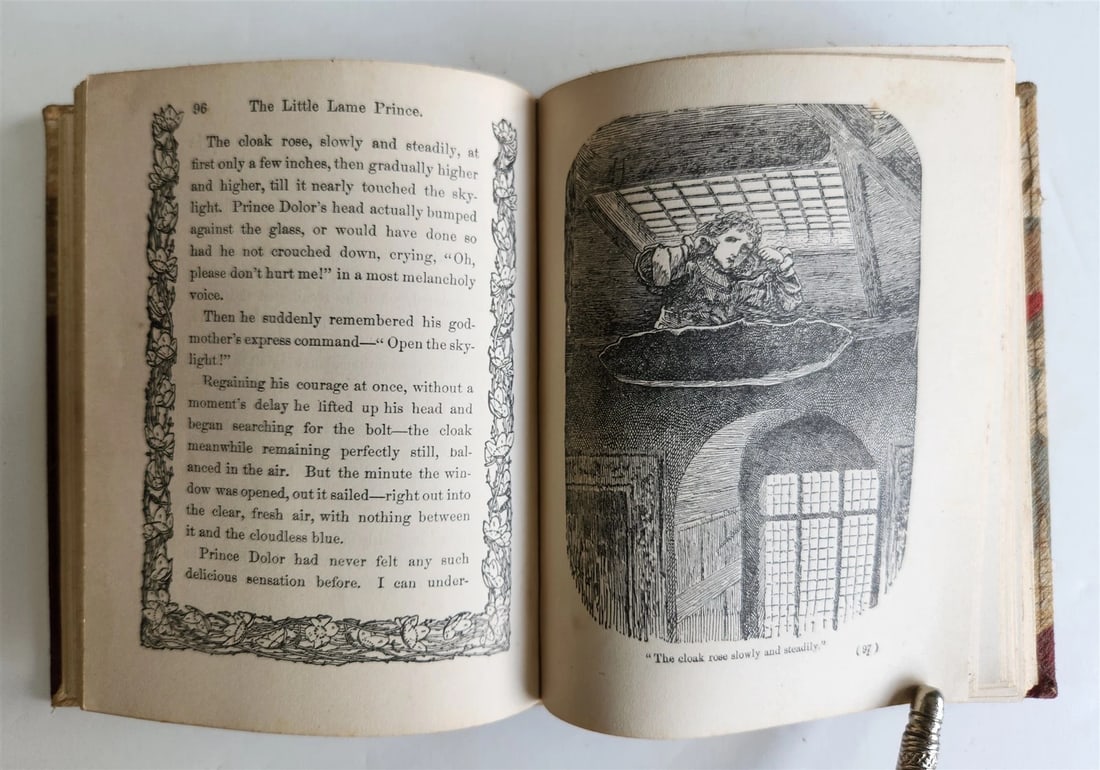 96 The Little Lame Prince.
The cloak rose, slowly and steadily, at
first only a few inches, then gradually higher
and higher, till it nearly touched the sky-
light. Prince Dolor's head actually bumped
against the glass, or would have done so
had he not crouched down, crying, “Oh,
please don't hurt me!” in a most melancholy
voice.
Then he suddenly remembered his god-
mother's express command—“Open the sky-
light!”
Regaining his courage at once, without a
moment's delay he lifted up his head and
began searching for the bolt—the cloak
meanwhile remaining perfectly still, bal-
anced in the air. But the minute the win-
dow was opened, out it sailed—right out into
the clear, fresh air, with nothing between
it and the cloudless blue.
Prince Dolor had never felt any such
delicious sensation before. I can under-
“The cloak rose slowly and steadily.” (97)